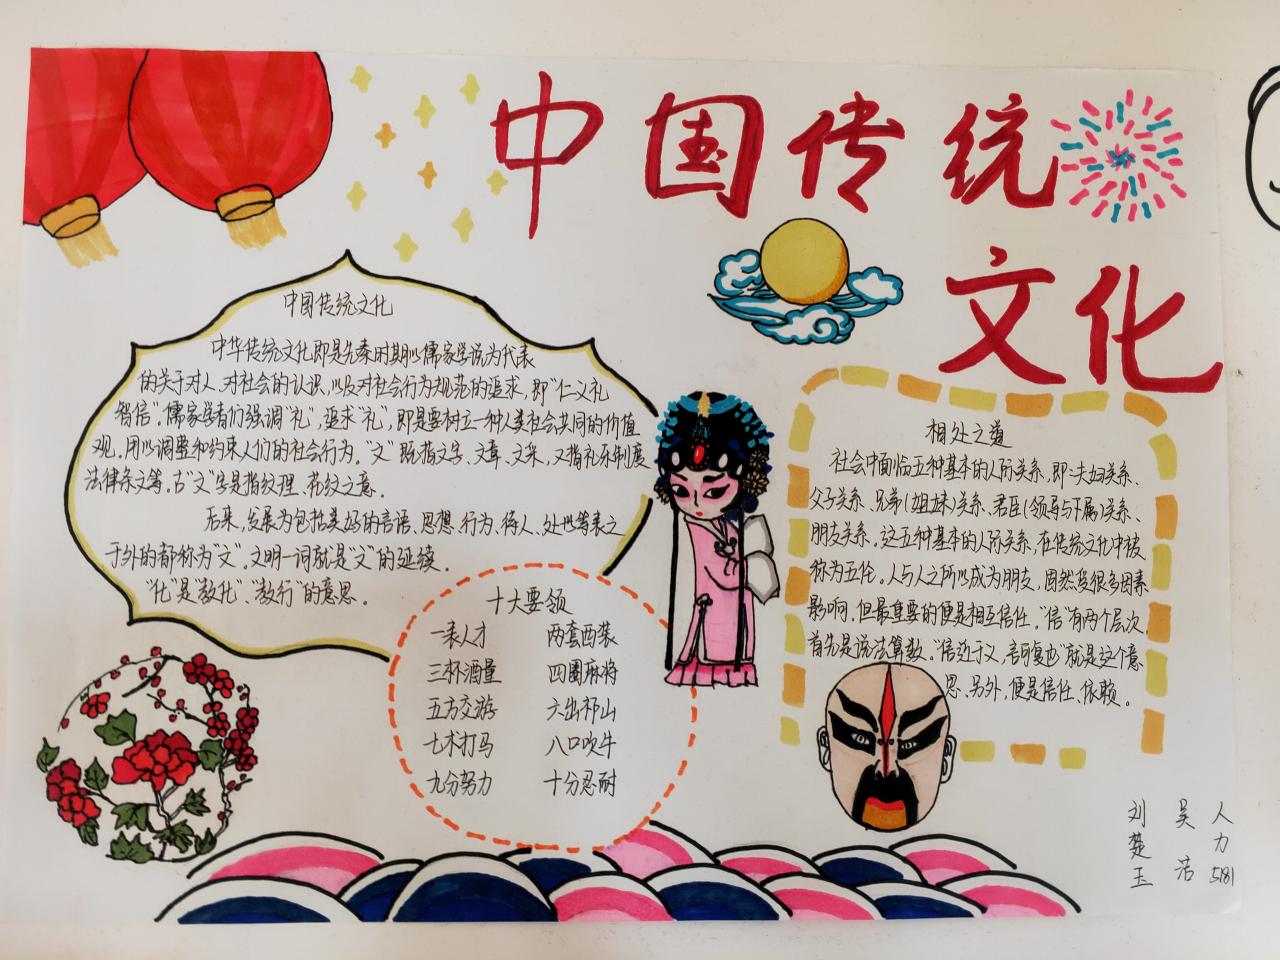 中国传统
文化
中国传统文化
中华传统文化即是先秦时期以儒家学说为代表
的关于对人、对社会的认识,以及对社会行为规范的追求,即“仁义礼
智信”。儒家学者们强调“礼”,追求“礼”,即是要树立一种人类社会共同的价值
观。用以调整和约束人们的社会行为。“文”既指文字、文章、文采,又指礼乐制度
法律条文等。古“文”字是指纹理、花纹之意。
后来,发展为包括美好的言语、思想、行为、待人、处世等表之
于外的都称为“文”。文明一词就是“文”的延续。
“化”是“教化”、“教行”的意思。
十大要领
一表人才 两套西装
三杯酒量 四圈麻将
五方交游 六出祁山
七术打马 八口吹牛
九分努力 十分忍耐
相处之道
社会中面临五种基本的人际关系,即:夫妇关系、
父子关系、兄弟(姐妹)关系、君臣(领导与下属)关系、
朋友关系。这五种基本的人际关系,在传统文化中被
称为五伦。人与人之所以成为朋友,固然受很多因素
影响,但最重要的便是相互信任。“信”有两个层次,
首先是说法算数。“信近于义,言可复也”就是这个意
思,另外,便是信任、依赖。
人力5181
吴浩
刘楚玉